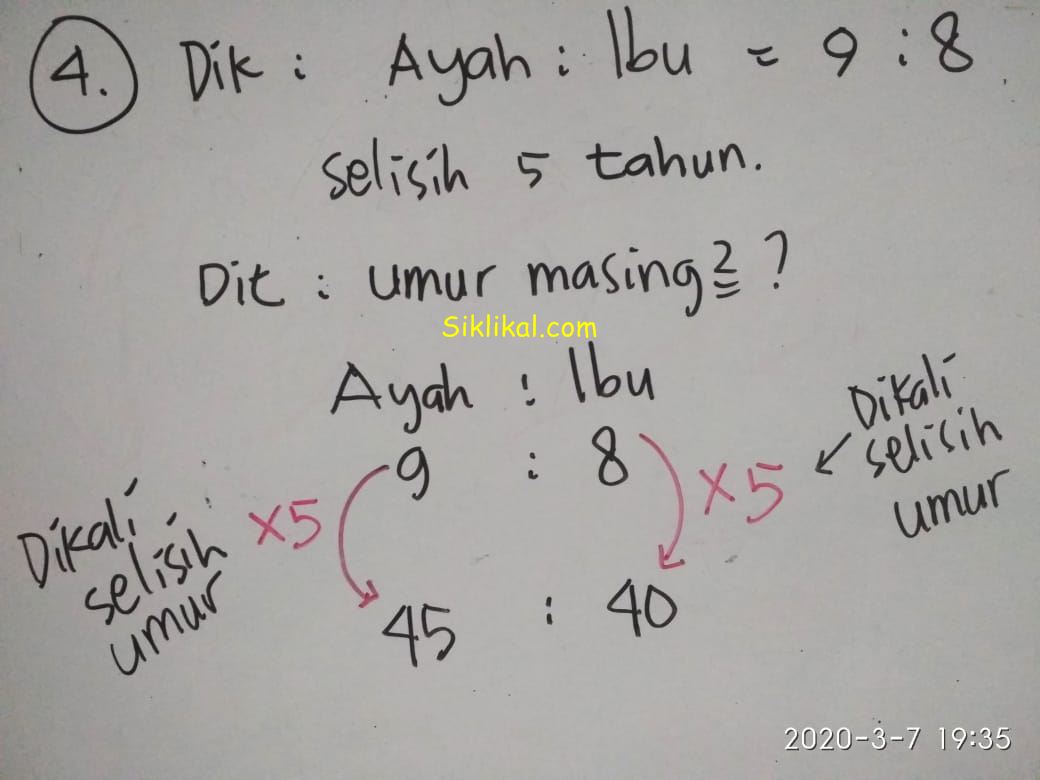 4. Dik : Ayah : Ibu = 9 : 8
selisih 5 tahun.
Dit : umur masing2 ?
Siklikal.com
Ayah : Ibu
9 : 8
x5
x5
Dikali
selisih
umur
Dikali
selisih
umur
45 : 40
2020-3-7 19:35